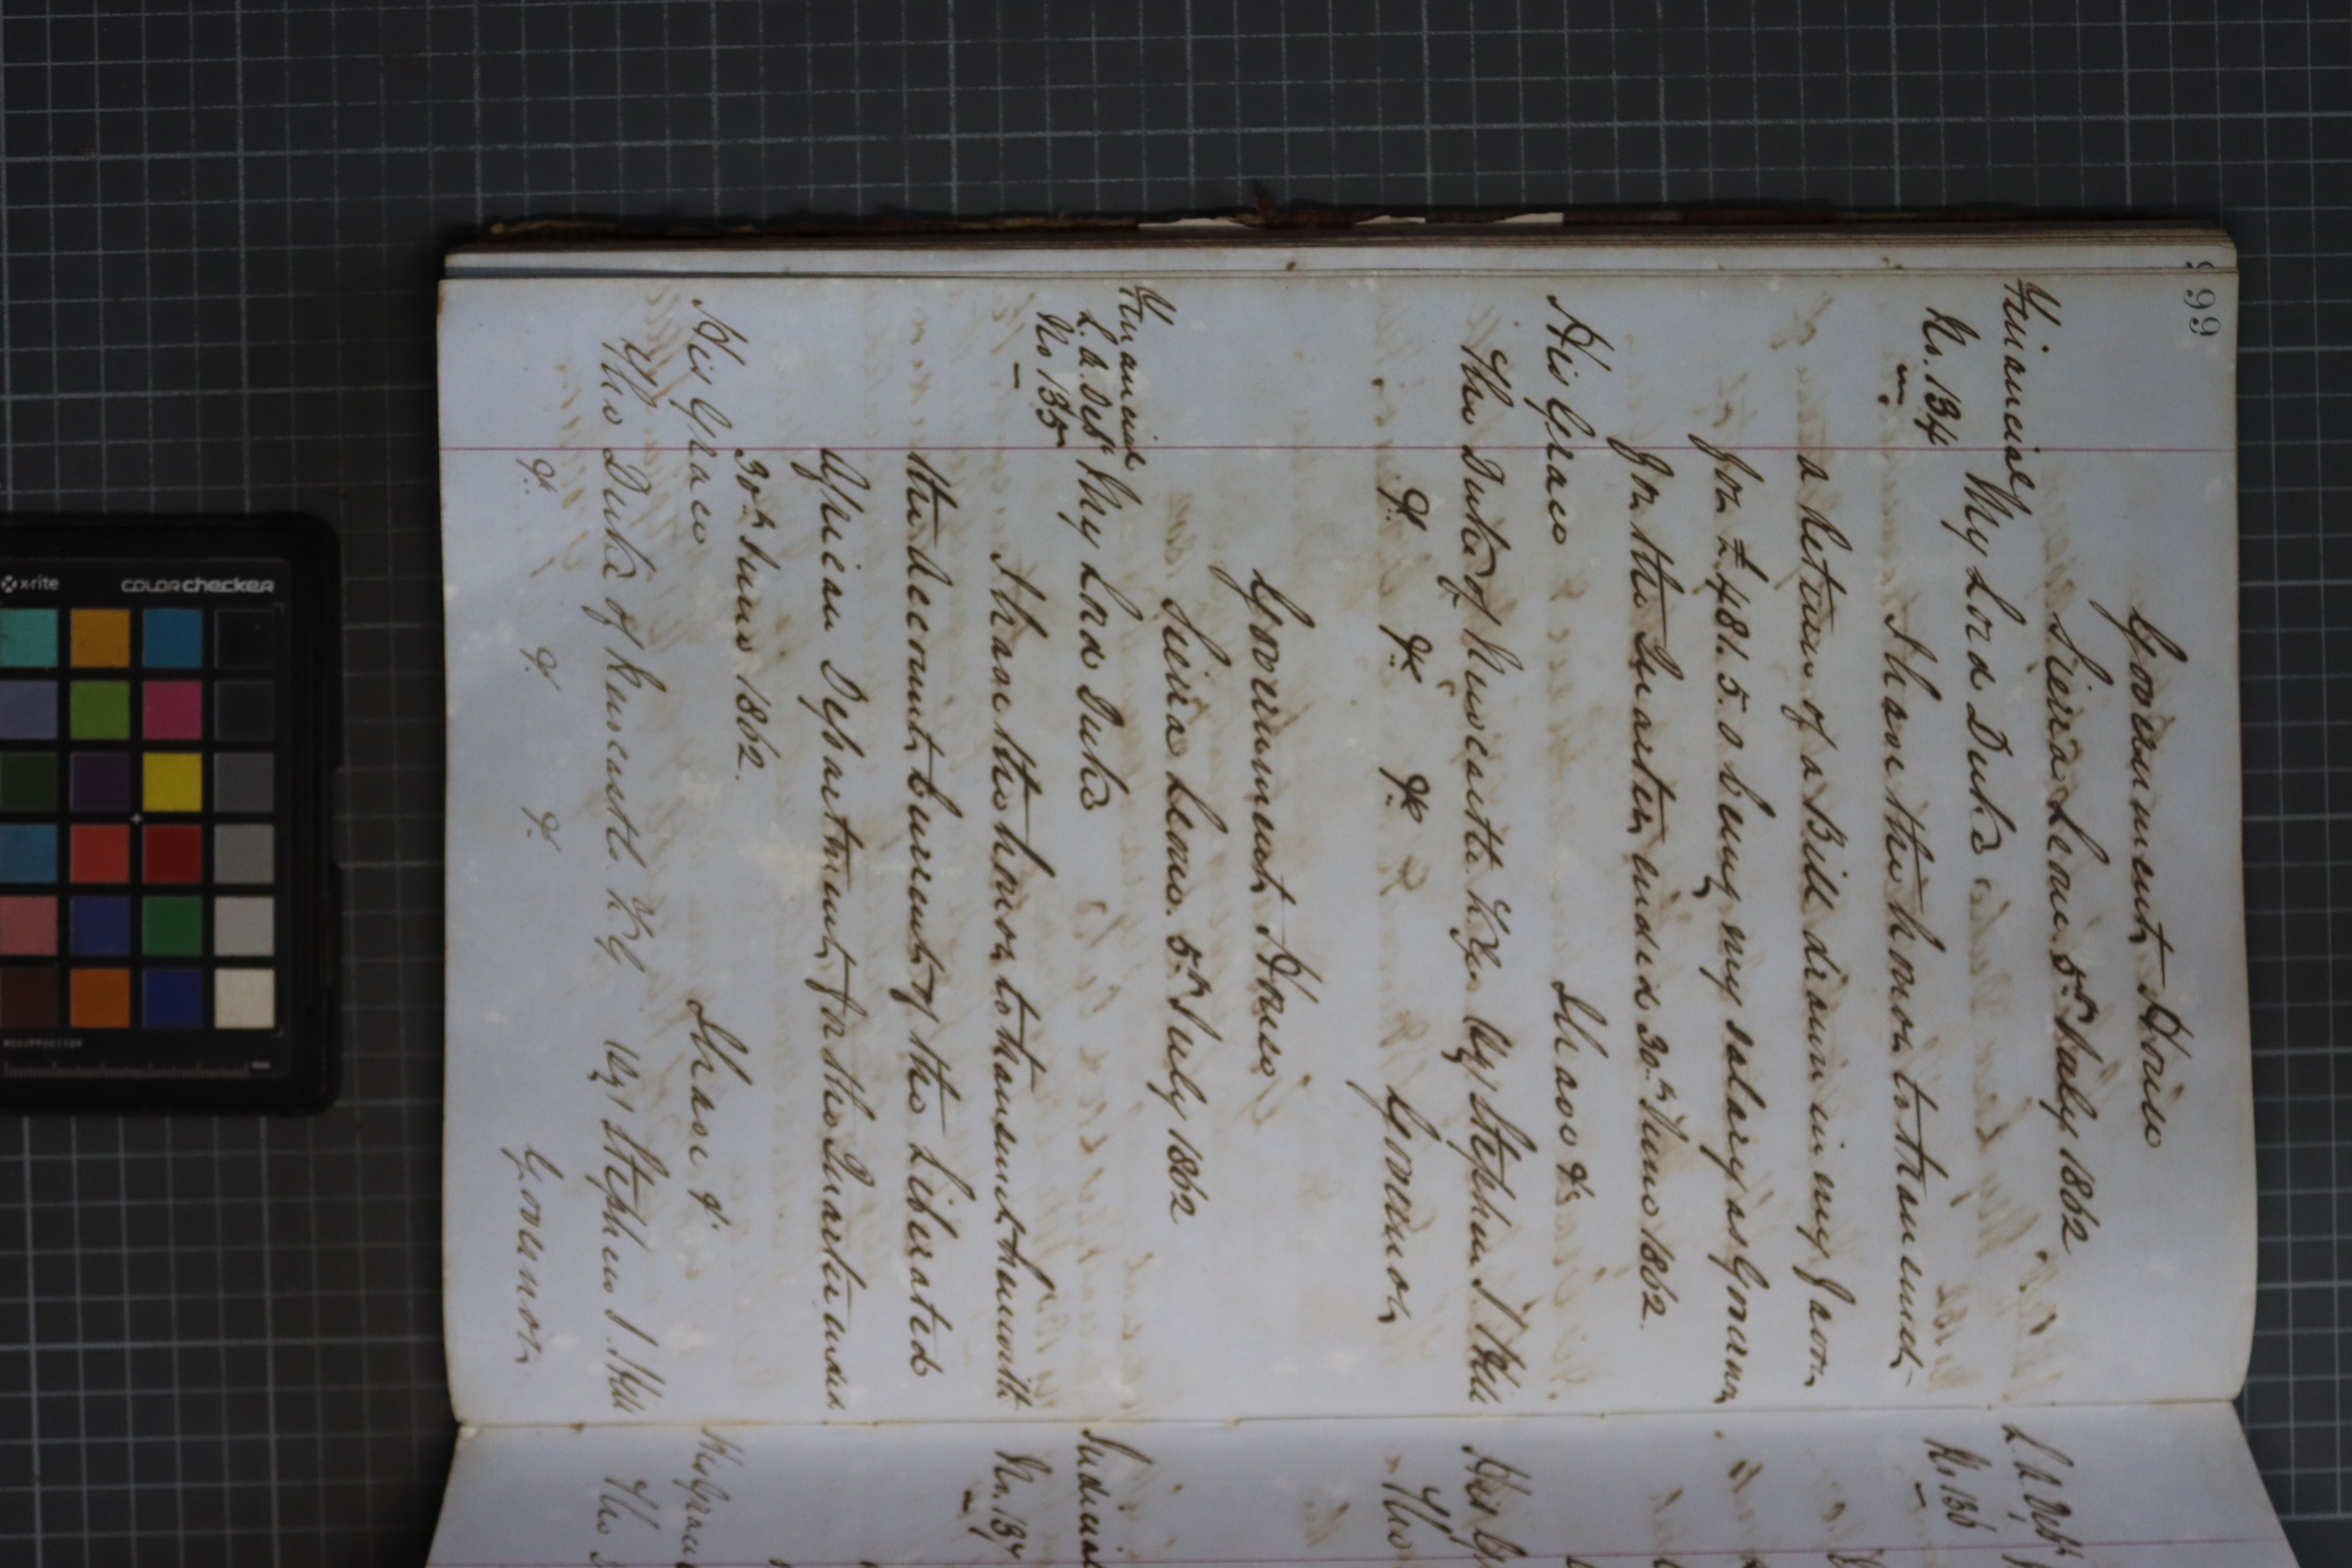 99
Government House
Sierra Leone 5th July 1862
Financial
No. 134
My Lord Duke
I have the honor to transmit
a return of a Bill drawn in my favor
for £481.5.0 being my salary as Governor
for the Quarter ended 30th June 1862.
I have &c
His Grace
The Duke of Newcastle K.G. Sig Stephen J Hill
&c &c &c Governor
Government House
Sierra Leone. 5th July 1862
Financial
L.A. Dept
No 135
My Lord Duke
I have the honor to transmit herewith
the Account Current of the Liberated
African Department for the Quarter ended
30th June 1862.
I have &c
His Grace
The Duke of Newcastle K.G. Sig Stephen J. Hill
&c &c &c Governor
L A Dept
No 136
His
The
Judicial
No. 137
His Grace
The
x-rite
colorchecker